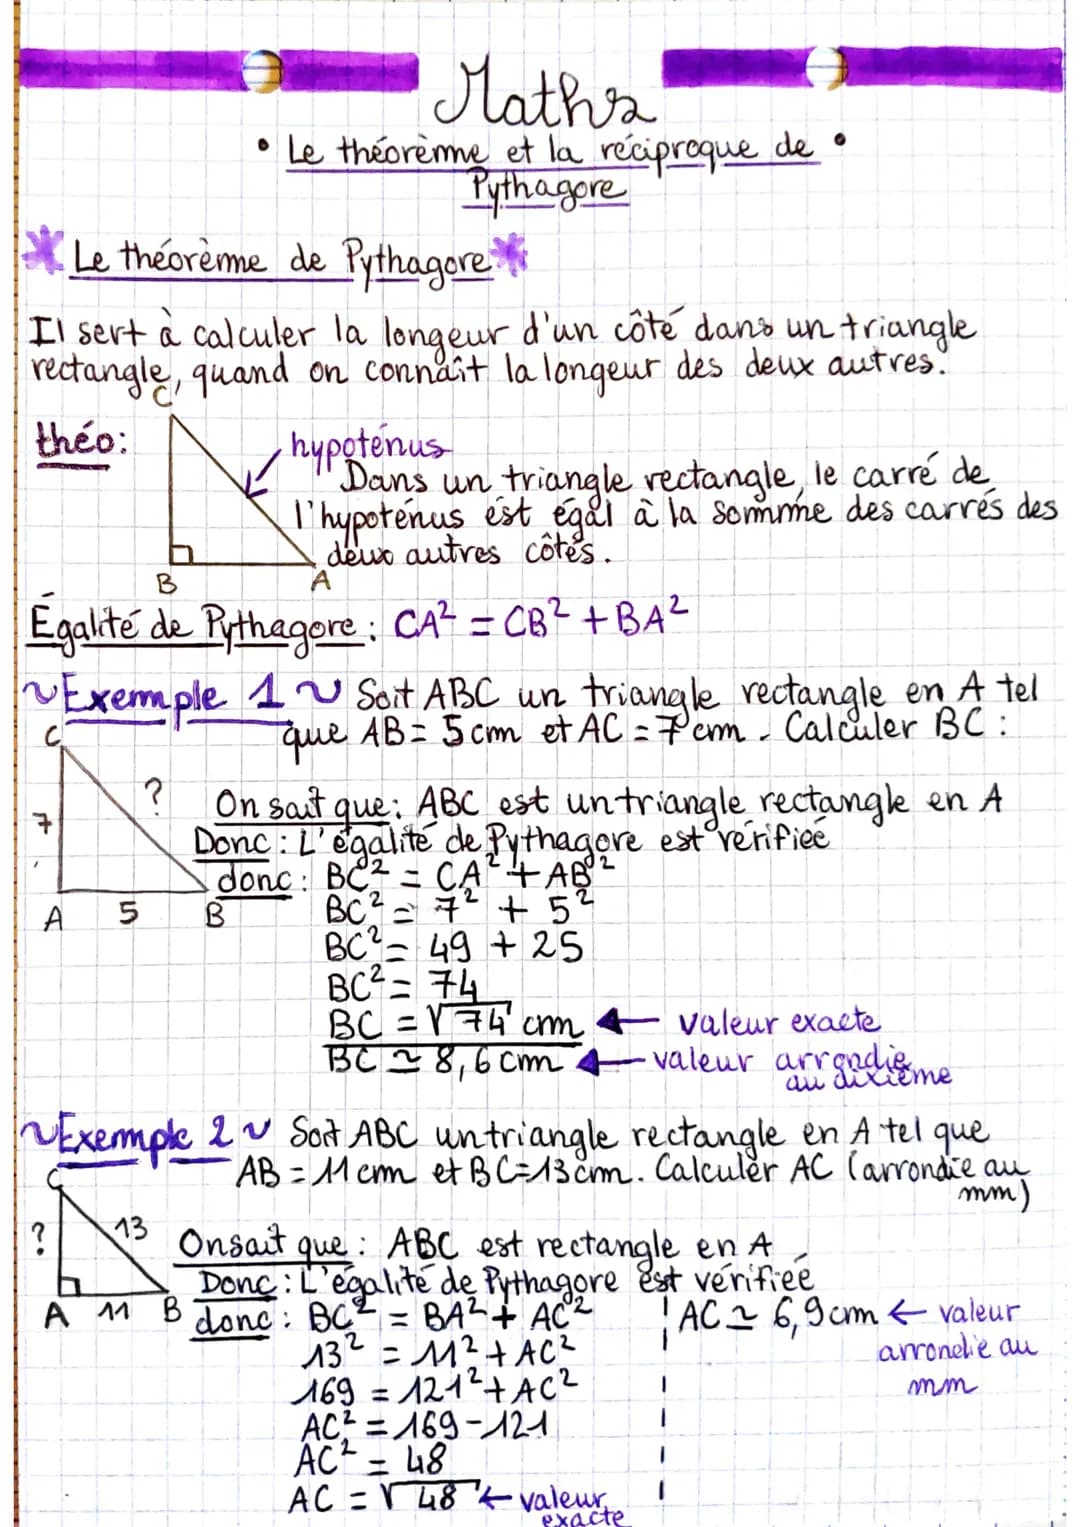 Maths
• Le théorème et la réciproque de •
Pythagore
Le théorème de Pythagore
Il sert à calculer la longeur d'un côté dans un triangle
rectangle, quand on connaît la longeur des deux autres.
C
théo:
hypoténus
Dans un triangle rectangle, le carré de
l'hypoténus est égal à la somme des carrés des
deux autres côtés.
B A
Égalité de Pythagore : CA² = CB² + BA²
~Exemple 1~ Soit ABC un triangle rectangle en A tel
que AB = 5 cm et AC = 7 cm. Calculer BC :
C
?
7
On sait que : ABC est un triangle rectangle en A
Donc : L'égalité de Pythagore est vérifiée
donc : BC² = CA² + AB²
A 5 B
BC² = 7² + 5²
BC² = 49 + 25
BC² = 74
BC = √74 cm ← valeur exacte
BC ≃ 8,6 cm ← valeur arrondie
au dixième
~Exemple 2~ Soit ABC un triangle rectangle en A tel que
AB = 11 cm et BC = 13 cm. Calculer AC (arrondie au
mm)
C
? 13
On sait que : ABC est rectangle en A
Donc : L'égalité de Pythagore est vérifiée
A 11 B
donc : BC² = BA² + AC²
13² = 11² + AC²
169 = 121² + AC²
AC² = 169 - 121
AC² = 48
AC = √48 ← valeur
exacte
AC ≃ 6,9 cm ← valeur
arrondie au
mm